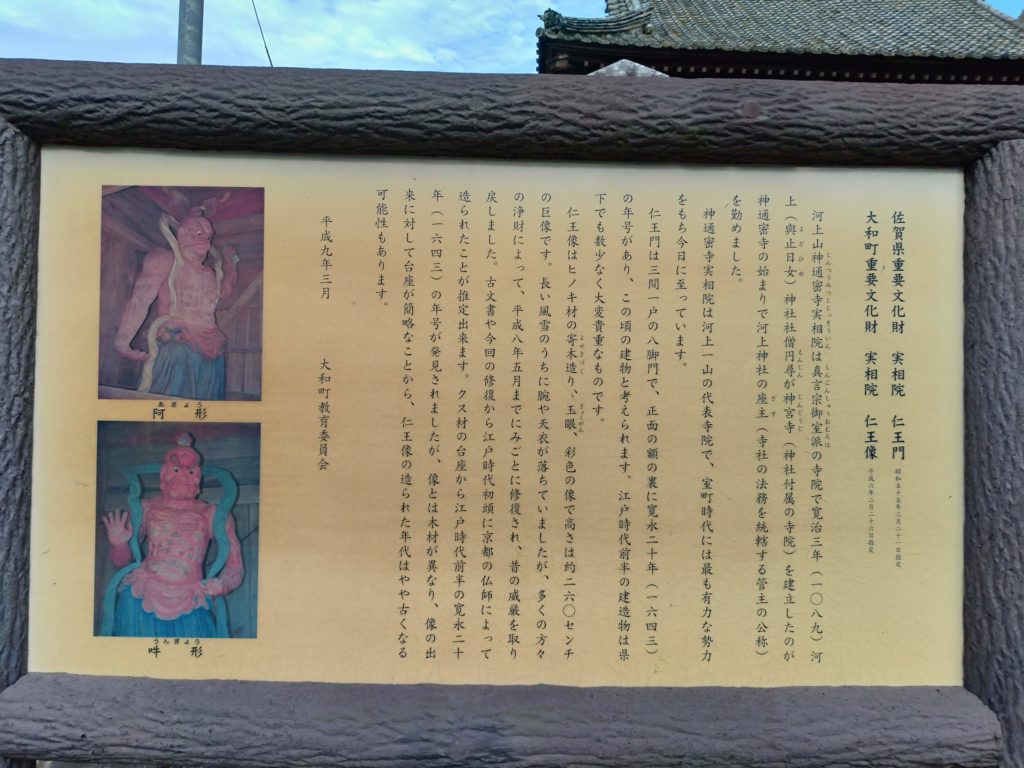 佐賀県重要文化財 実相院 仁王門 昭和五十五年三月二十一日指定
大和町重要文化財 実相院 仁王像 平成六年二月二十六日指定
河上山神通密寺実相院は真言宗御室派の寺院で寛治三年(一〇八九)河
じんつうみつじじっそういん しんごんしゅうおむろは
上(與止日女)神社社僧円尋が神宮寺(神社付属の寺院)を建立したのが
よどひめ えんじん じんぐうじ
神通密寺の始まりで河上神社の座主(寺社の法務を統轄する管主の公称)
ざす
を勤めました。
神通密寺実相院は河上一山の代表寺院で、室町時代には最も有力な勢力
をもち今日に至っています。
仁王門は三間一戸の八脚門で、正面の額の裏に寛永二十年(一六四三)
の年号があり、この頃の建物と考えられます。江戸時代前半の建造物は県
下でも数少なく大変貴重なものです。
仁王像はヒノキ材の寄木造り、玉眼、彩色の像で高さは約二六〇センチ
よせぎづく ぎょくがん
の巨像です。長い風雪のうちに腕や天衣が落ちていましたが、多くの方々
の浄財によって、平成八年五月までにみごとに修復され、昔の威厳を取り
戻しました。古文書や今回の修復から江戸時代初頭に京都の仏師によって
造られたことが推定出来ます。クス材の台座から江戸時代前半の寛永二十
年(一六四三)の年号が発見されましたが、像とは木材が異なり、像の出
来に対して台座が簡略なことから、仁王像の造られた年代はやや古くなる
可能性もあります。
平成九年三月 大和町教育委員会
あぎょう
阿形
うんぎょう
吽形